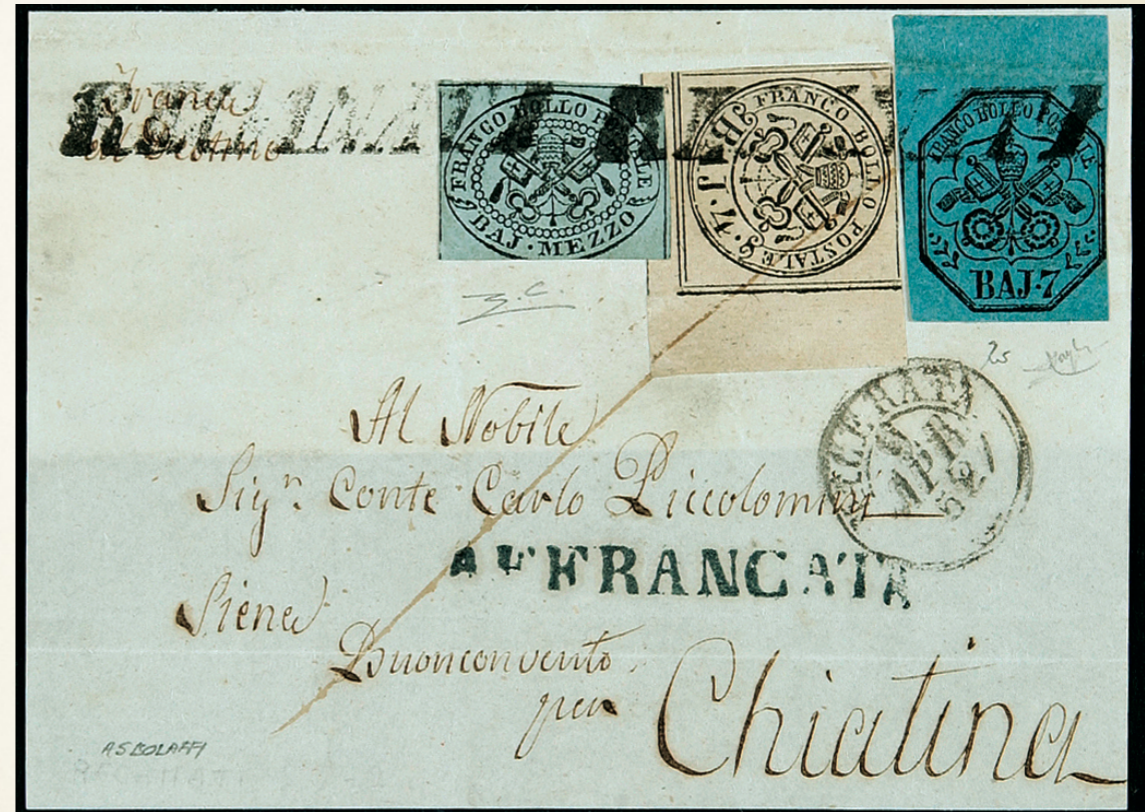 Franca
al Destino
FRANCO BOLLO POSTALE
BAJ·MEZZO
FRANCO BOLLO POSTALE
BAJ·4
FRANCO BOLLO POSTALE
BAJ·7
25
MACERATA
APR
52
Al Nobile
Sigr. Conte Carlo Piccolomini
AFFRANCATA
Siena
Buonconvento
per
Chiatina
ASBOLAFFI